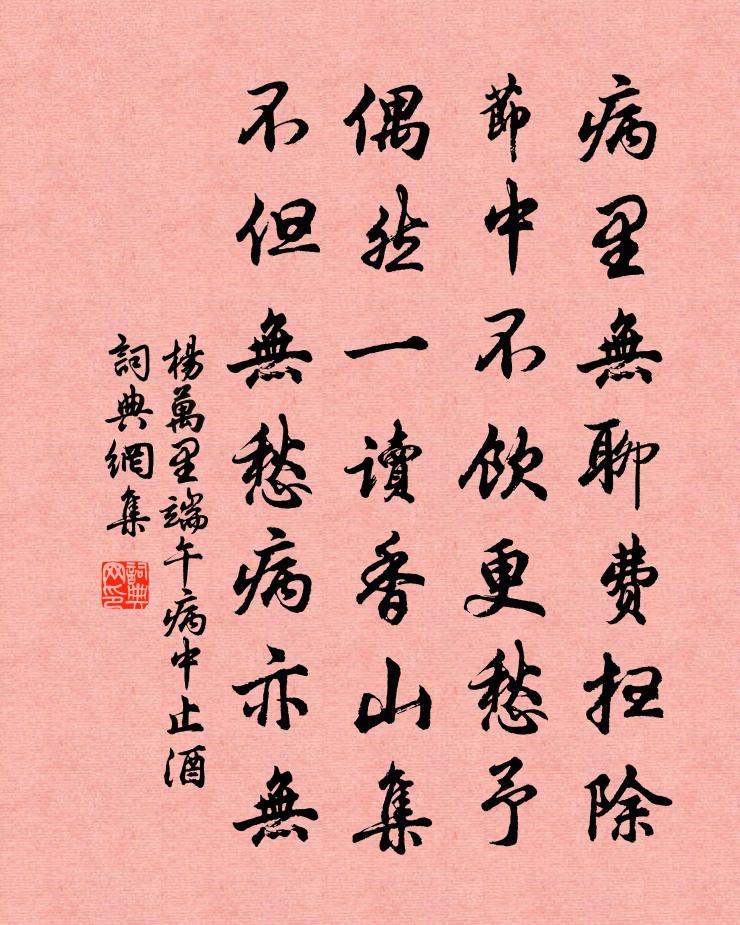 病里無聊費掃除
節中不飲更愁予
偶然一讀香山集
不但無愁病亦無
楊萬里端午病中止酒
詞典網集
詞典网印